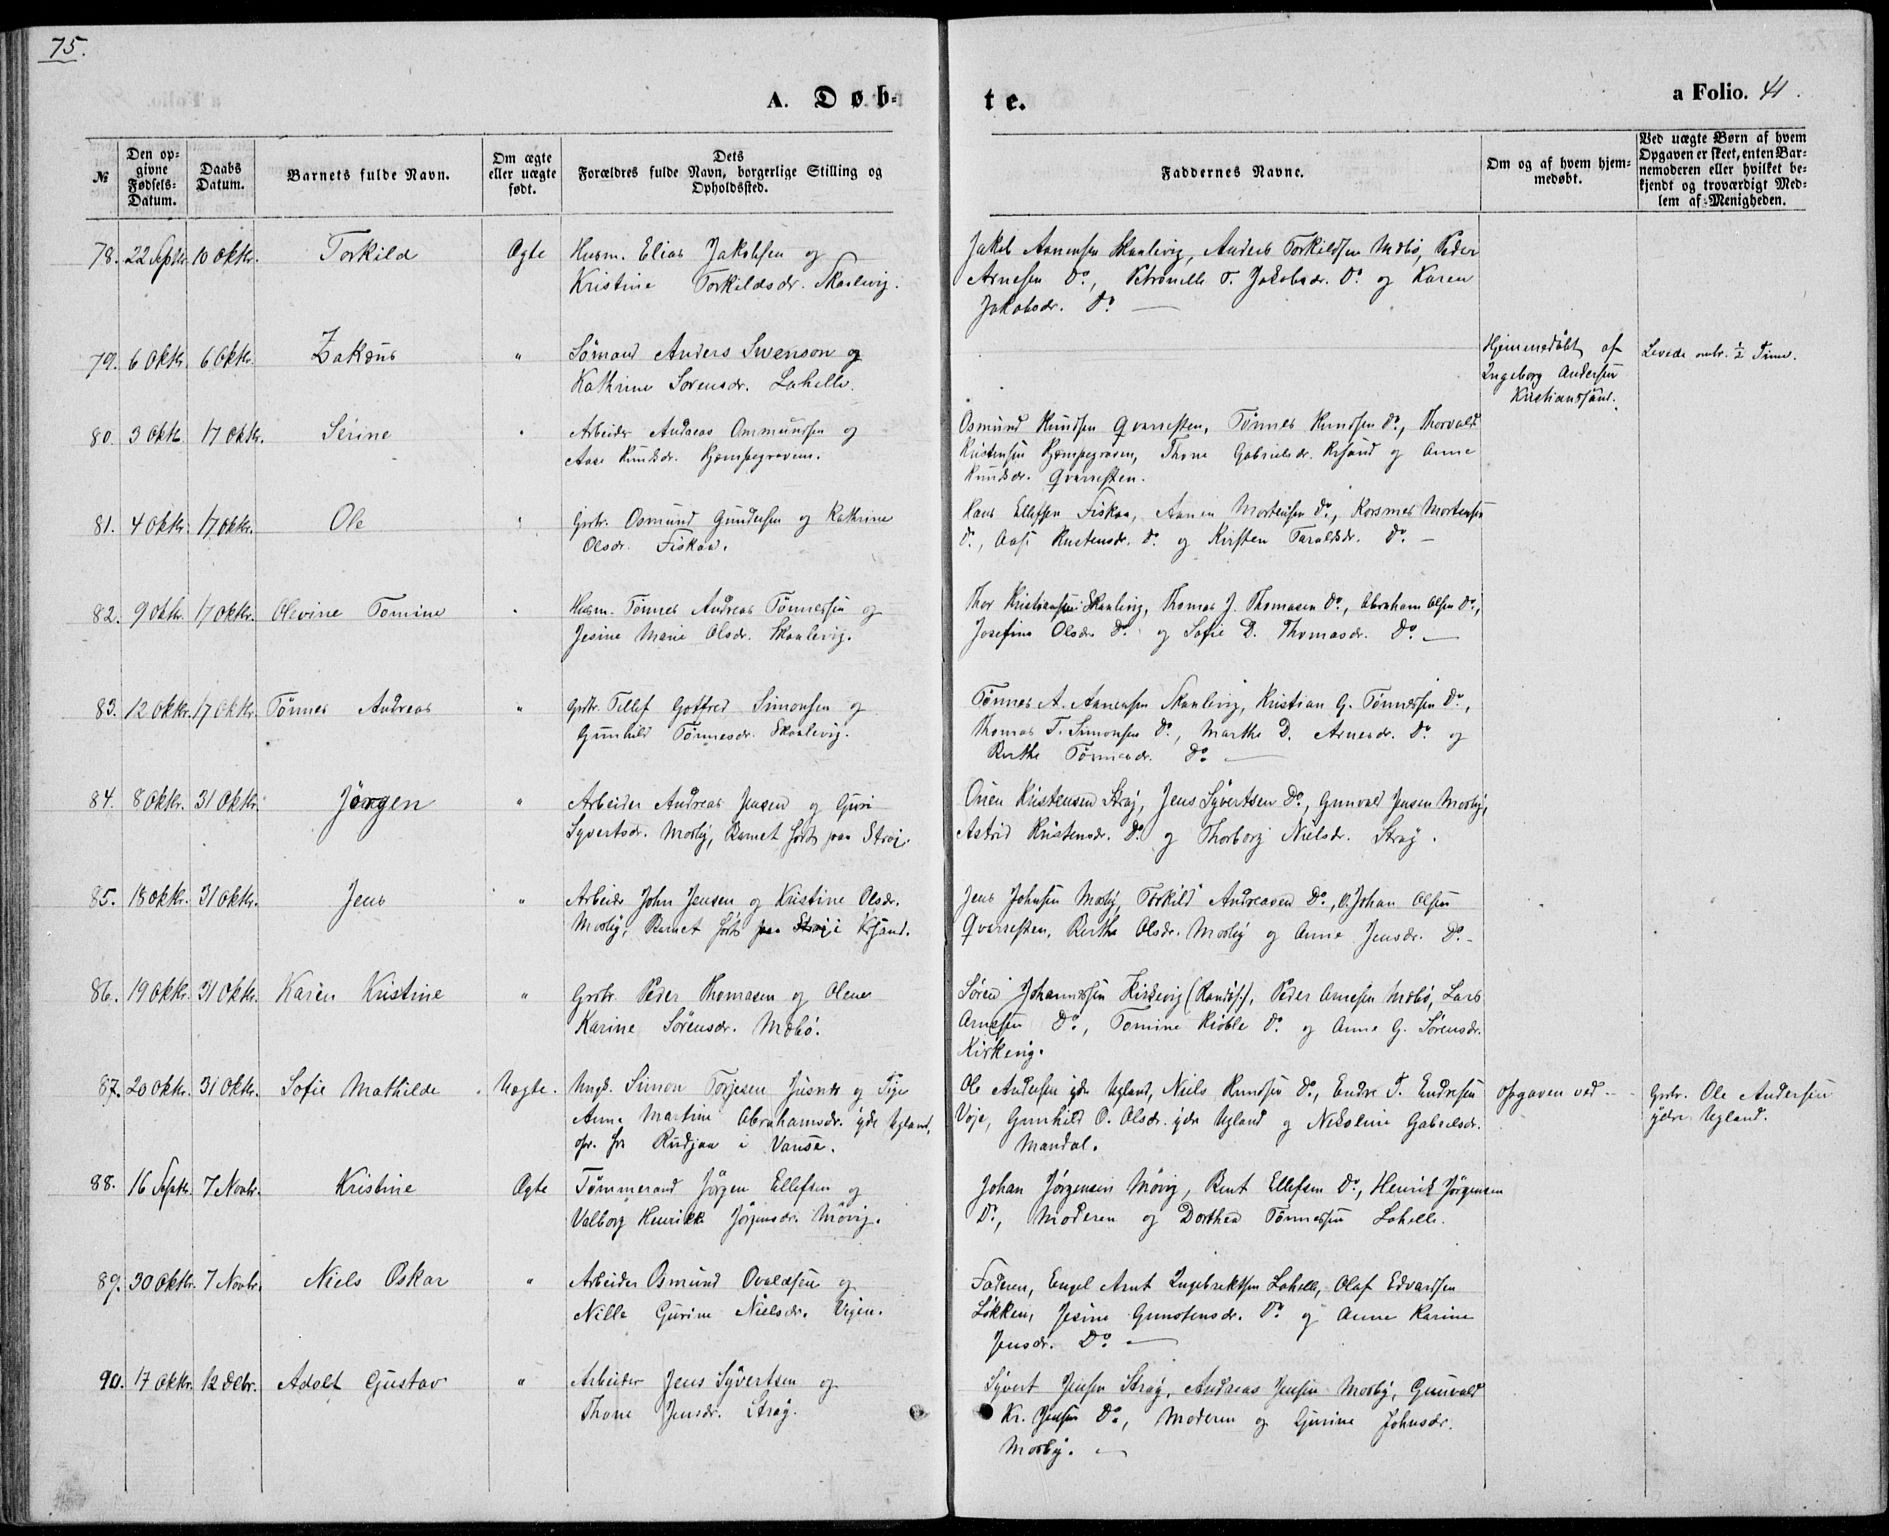 75.
A. Døb-
te.
a Folio. 41.
№
Den op-
givne
Fødsels-
Datum.
Daabs
Datum.
Barnets fulde Navn.
Om ægte
eller uægte
født.
Dets
Forældres fulde Navn, borgerlige Stilling og
Opholdssted.
Faddernes Navne.
Om og af hvem hjem-
medøbt.
Ved uægte Børn af hvem
Opgaven er skeet, enten Bar-
nemoderen eller hvilket be-
kjendt og troværdigt Med-
lem af Menigheden.
78. 22 Septr. 10 Oktr. Torkild Ægte Husm. Elias Jakobsen og
Kristine Torkildsdr. Skaalevig.
Jakob Aanensen Skaalevig, Anders Torkildsen Mæbø, Peder
Arnesen Do., Petronelle T. Jakobsdr. Do. og Karen
Jakobsdr. Do. —
79. 6 Oktr. 6 Oktr. Zakæus " Sømand Anders Swenson og
Kathrine Sorensdr. Lahelle.
Hjemmedøbt af
Ingeborg Andersen
Kristianssand.
Levede omtr. ½ Time.
80. 3 Oktr. 17 Oktr. Serine " Arbeider Andreas Ommundsen og
Aase Knudsdr. Kjæmpegraven.
Osmund Knudsen Qvarresten, Tønnes Knudsen Do., Thorvald
Kristensen Kjæmpegraven, Thone Gabrielsdr. Krsand og Anne
Knudsdr. Qvarresten.
81. 4 Oktr. 17 Oktr. Ole " Grbr. Osmund Gundersen og Kathrine
Olsdr. Fiskaa.
Hans Ellefsen Fiskaa, Aanen Mortensen Do., Rasmus Mortensen
Do., Aase Knutensdr. Do. og Kirsten Taraldsdr. Do. —
82. 9 Oktr. 17 Oktr. Olevine Tomine " Husm. Tønnes Andreas Tønnessen og
Jesine Marie Olsdr. Skaalevig.
Thor Kristiansen Skaalevig, Thomas J. Thomasen Do., Abraham Olsen Do.,
Josefine Olsdr. Do. og Sofie D. Thomasdr. Do. —
83. 12 Oktr. 17 Oktr. Tønnes Andreas " Grbr. Tellef Gotfred Simonsen og
Gunhild Tønnesdr. Skaalevig.
Tønnes A. Aanensen Skaalevig, Kristian G. Tønnessen Do.,
Thomas T. Simonsen Do., Marthe D. Arnesdr. Do. og
Berthe Tønnesdr. Do. —
84. 8 Oktr. 31 Oktr. Jørgen " Arbeider Andreas Jensen og Guri
Syvertsdr. Mosby, Barnet født paa Straj.
Orien Kristensen Straj, Jens Syvertsen Do., Gunvald Jensen Mosby,
Astrid Kristensdr. Do. og Thorborg Nielsdr. Straj.
85. 18 Oktr. 31 Oktr. Jens " Arbeider John Jensen og Kristine Olsdr.
Mosby, Barnet født paa Straj i Krsand.
Jens Johnsen Mosby, Torkild Andreasen Do., Johan Olsen
Qvarresten, Berthe Olsdr. Mosby og Anne Jensdr. Do. -
86. 19 Oktr. 31 Oktr. Karen Kristine " Grbr. Peder Thomasen og Olene
Karine Sørensdr. Mæbø.
Søren Johannessen Kirkevig (Randøs.), Peder Arnesen Mæbø, Lars
Arnesen Do., Tomine Kioble Do. og Anne G. Sørensdr.
Kirkevig.
87. 20 Oktr. 31 Oktr. Sofie Mathilde Uægte. Ungk. Simon Torjesen Jusnes og Pige
Anne Martine Abrahamsdr. ydre Ugland,
opr. fra Rudjaa i Vanse.
Ole Andersen ydre Ugland, Niels Knudsen Do., Endre T. Endresen
Voje, Gunhild O. Olsdr. ydre Ugland og Nikoline Gabrielsdr.
Mandal.
Opgaven ved —
Grbr. Ole Andersen
ydre Ugland.
88. 16 Septr. 7 Novbr. Kristine Ægte Tømmermand Jørgen Ellefsen og
Valborg Henrikke Jørgensdr. Møvig.
Johan Jørgensen Møvig, Bent Ellefsen Do., Henrik Jørgensen
Do., Moderen og Dorthea Tønnessen Lahelle.
89. 30 Oktr. 7 Novbr. Niels Oskar " Arbeider Osmund Ovaldsen og
Nille Gurine Nielsdr. Vigen.
Faderen, Engel Arnt Ingebrektsen Lahelle, Olaf Edvardsen
Løkken, Jesine Gunstensdr. Do. og Anne Karine
Jensdr. Do. —
90. 17 Oktr. 12 Decbr. Adolf Gustav " Arbeider Jens Syvertsen og
Thone Jensdr. Straj.
Syvert Jensen Straj, Andreas Jensen Mosby, Gunvald
Kr. Jensen Do., Moderen og Gurine Johnsdr.
Mosby. —